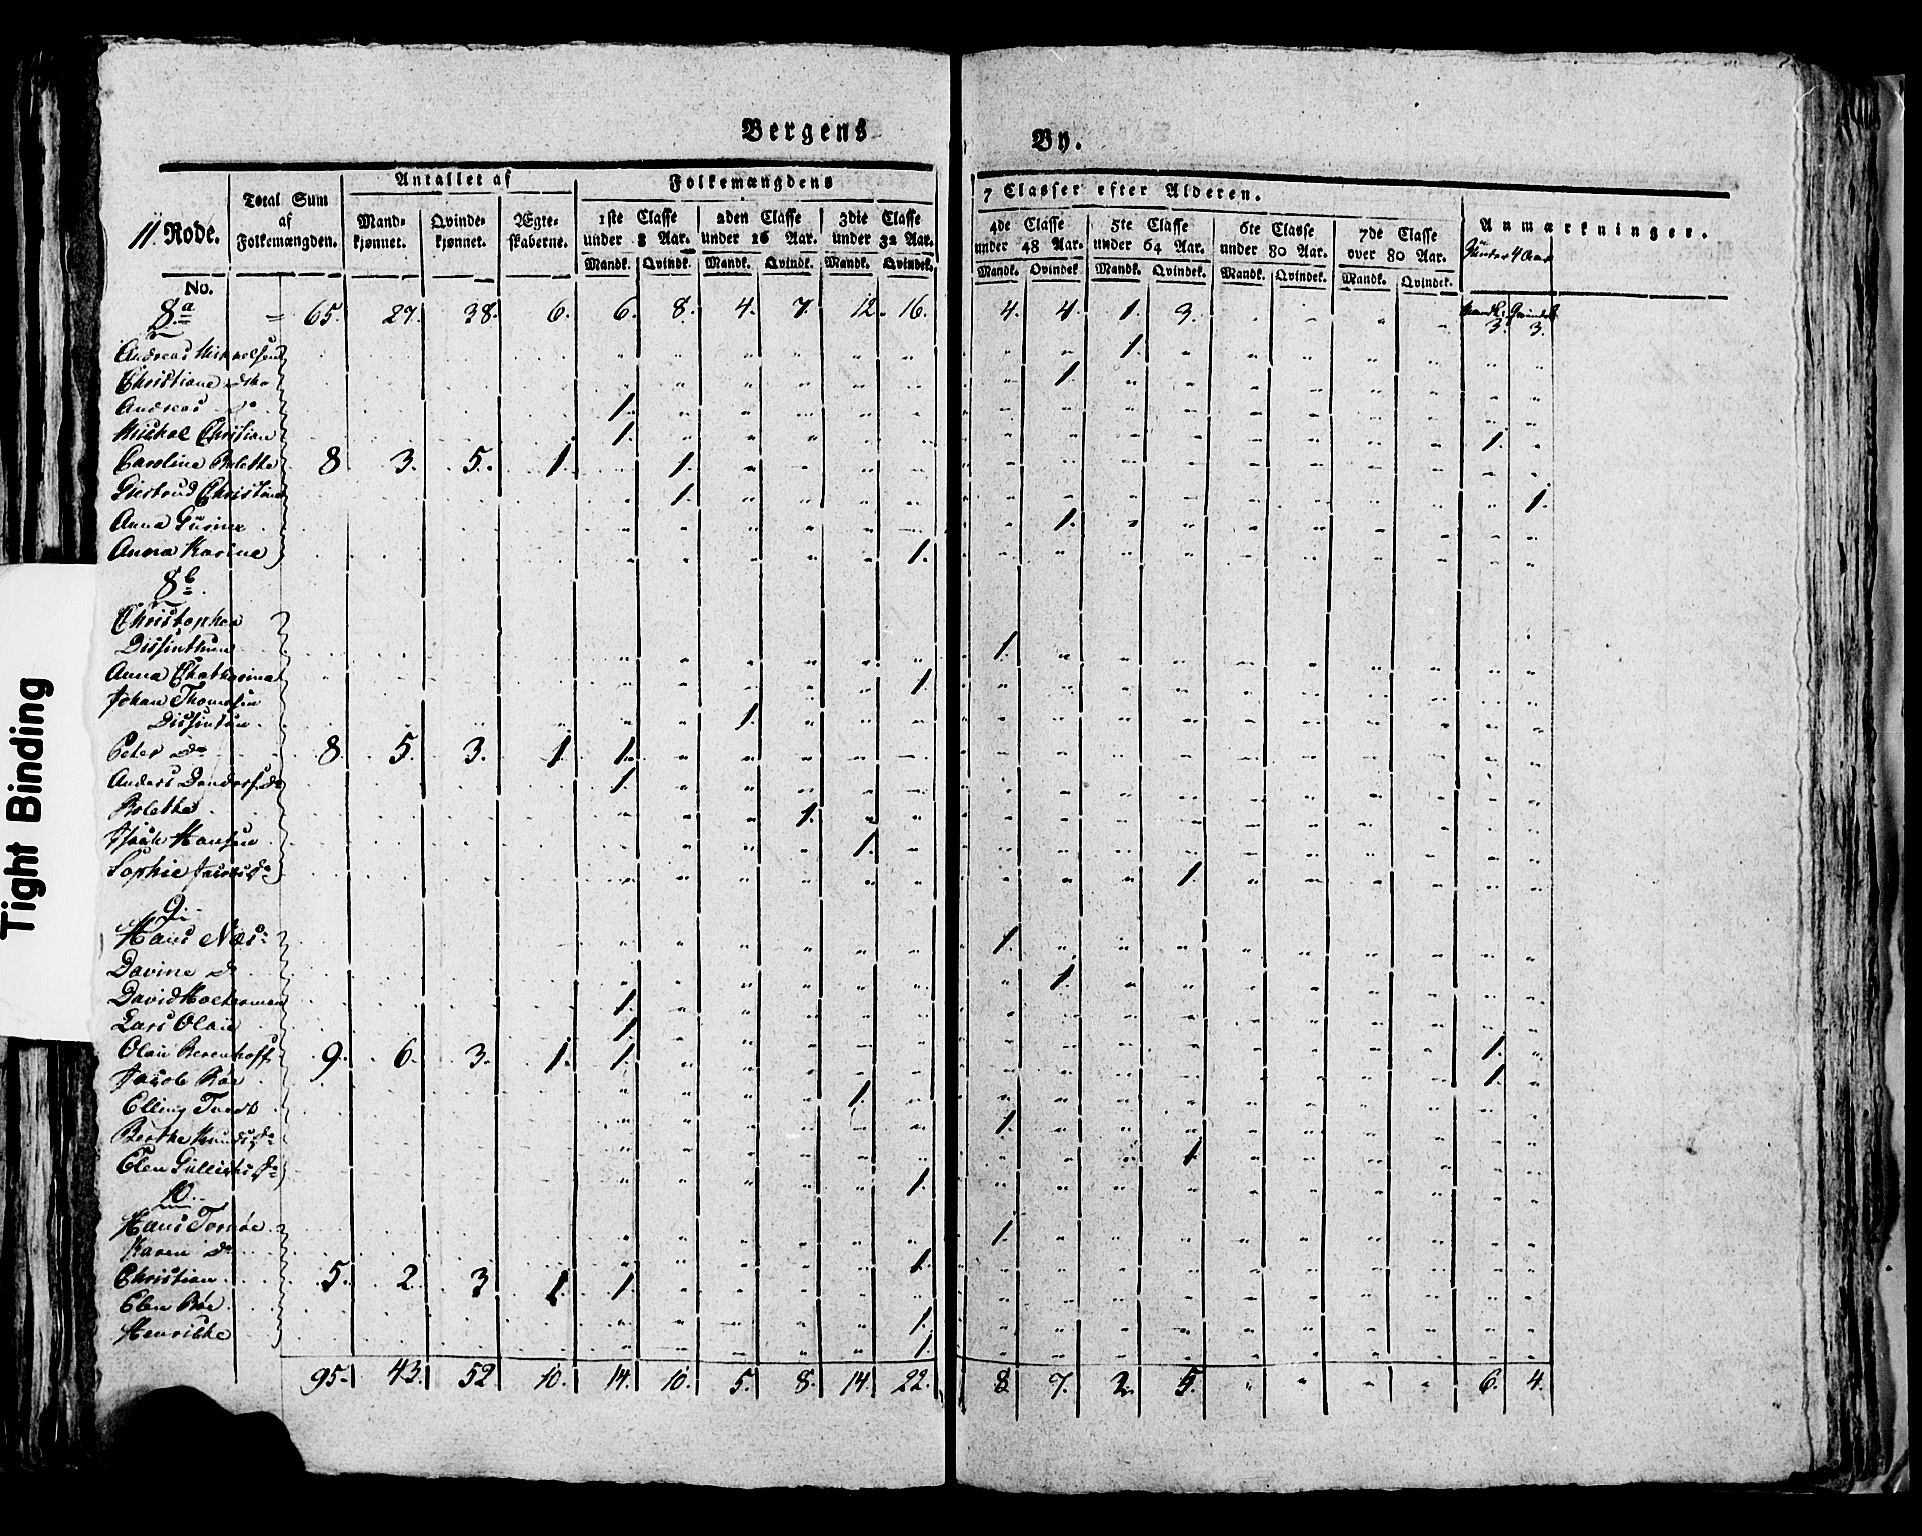 Bergens By.
11. Rode.
Total Sum af Folkemængden.
Antallet af
Mandkjønnet. Qvindekjønnet. Ægteskaberne.
Folkemængdens 7 Classer efter Alderen.
1ste Classe under 8 Aar. 2den Classe under 16 Aar. 3die Classe under 32 Aar. 4de Classe under 48 Aar. 5te Classe under 64 Aar. 6te Classe under 80 Aar. 7de Classe over 80 Aar.
Anmærkninger.
Under 4 Aar
Mandk. Qvindk. Mandk. Qvindk. Mandk. Qvindek. Mandk. Qvindek. Mandk. Qvindek. Mandk. Qvindek. Mandk. Qvindek.
No.
8a 65. 27. 38. 6. 6. 8. 4. 7. 12. 16. 4. 4. 1. 3. Mandk. 3. Qvindek. 3.
Andreas Michaelsen 1.
Christiane 1.
Andreas do 1.
Michael Christian 1. 1.
Caroline Bolethe 8 3. 5. 1. 1.
Giertrud Christine 1. 1.
Anna Gurine 1.
Anna Karine 1.
8b
Christopher
Dissinthun 1.
Anna Chatharina 1.
Johan Thomsen
Dissintun 1.
Peter do 8 5. 3. 1. 1.
Anders do 1.
Bolethe 1.
Isaak Hansen 1.
Sophie 1.
9.
Hans Næs 1.
Davine do 1.
David 1.
Lars Olaii 1.
Olaii 9. 6. 3. 1. 1. 1.
Jacob Bøe 1. 1.
Elling Tvedt 1.
Berthe Knudsd. 1.
Elen 1.
10.
Hans 1.
Karen do 1.
Christian 5. 2. 3 1. 1.
Elen Bøe 1.
Henricke 1.
95. 43. 52 10. 14. 10. 5. 8. 14. 22. 8. 7. 2. 5. 6. 4.
Tight Binding